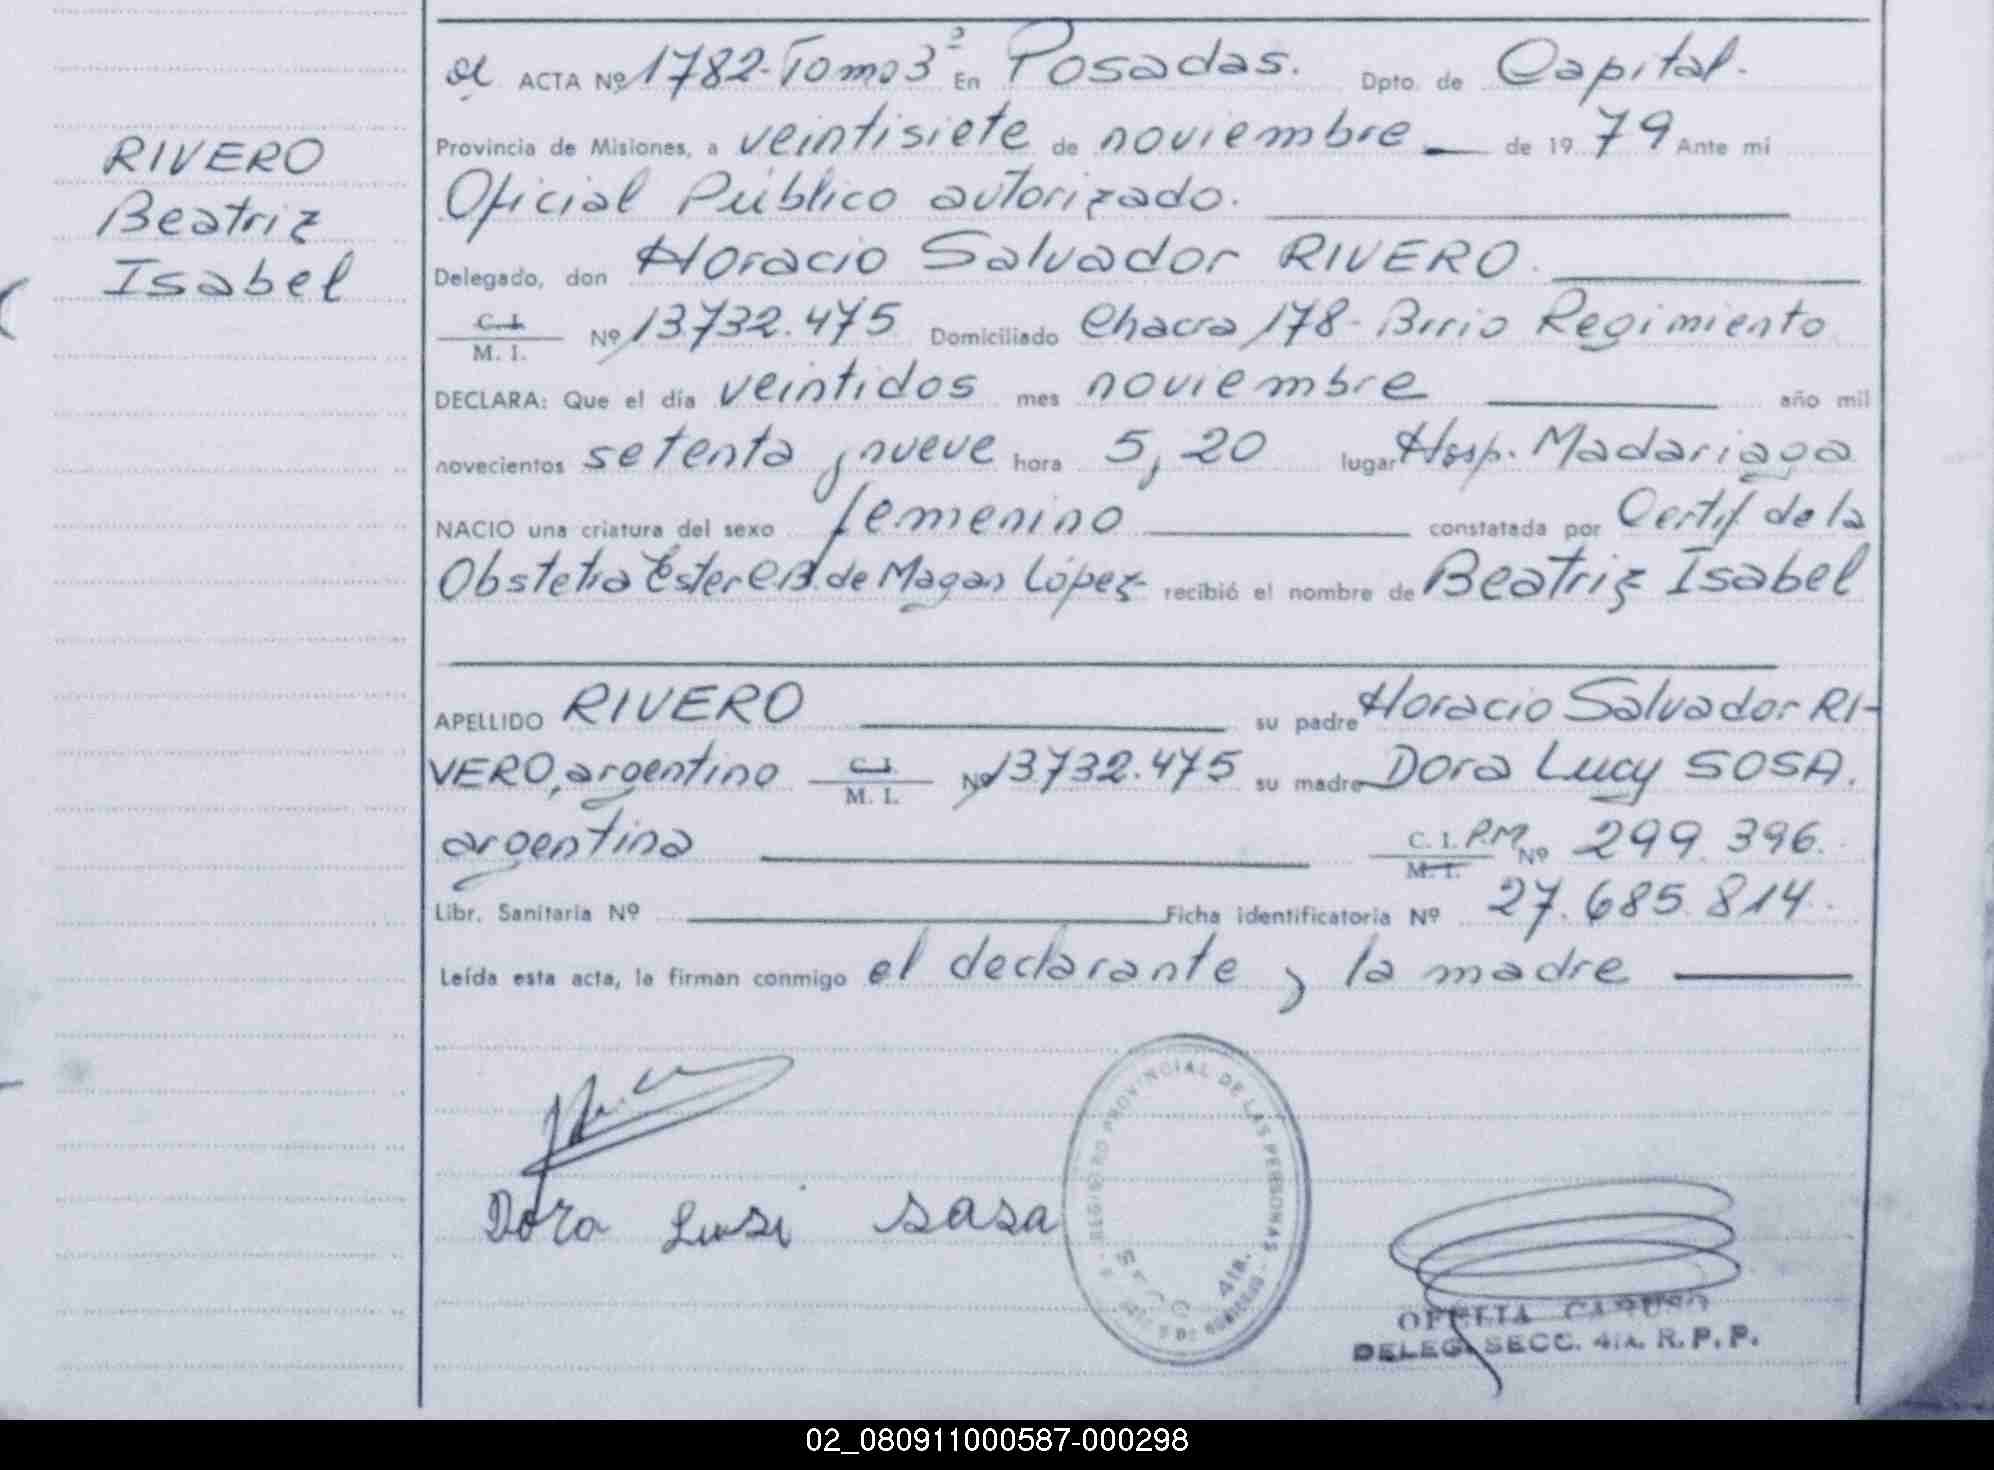 RIVERO
Beatriz
Isabel
ACTA Nº 1782-Tomo 3º En Posadas. Dpto. de Capital.
Provincia de Misiones, a veintisiete de noviembre de 1979 Ante mí
Oficial Público autorizado.
Delegado, don Horacio Salvador RIVERO.
C. I.
M. I. Nº 13.732.475 Domiciliado Chacra 178- Brrio Regimiento
DECLARA: Que el día veintidos mes noviembre año mil
novecientos setenta y nueve hora 5,20 lugar Hosp. Madariaga
NACIO una criatura del sexo femenino constatada por Certif. de la
Obstetra Ester C.B. de Magan López- recibió el nombre de Beatriz Isabel
APELLIDO RIVERO su padre Horacio Salvador RI-
VERO, argentino C. I. M. I. Nº 13.732.475 su madre Dora Lucy SOSA.
argentina C. I. P.M. M. I. Nº 299.396.
Libr. Sanitaria Nº Ficha identificatoria Nº 27.685.814.
Leída esta acta, la firman conmigo el declarante y la madre
Dora Lusi sasa
REGISTRO PROVINCIAL DE LAS PERSONAS
SECC 4ta.
OFELIA CARUSO
DELEG. SECC. 4ta. R. P. P.
02_080911000587-000298